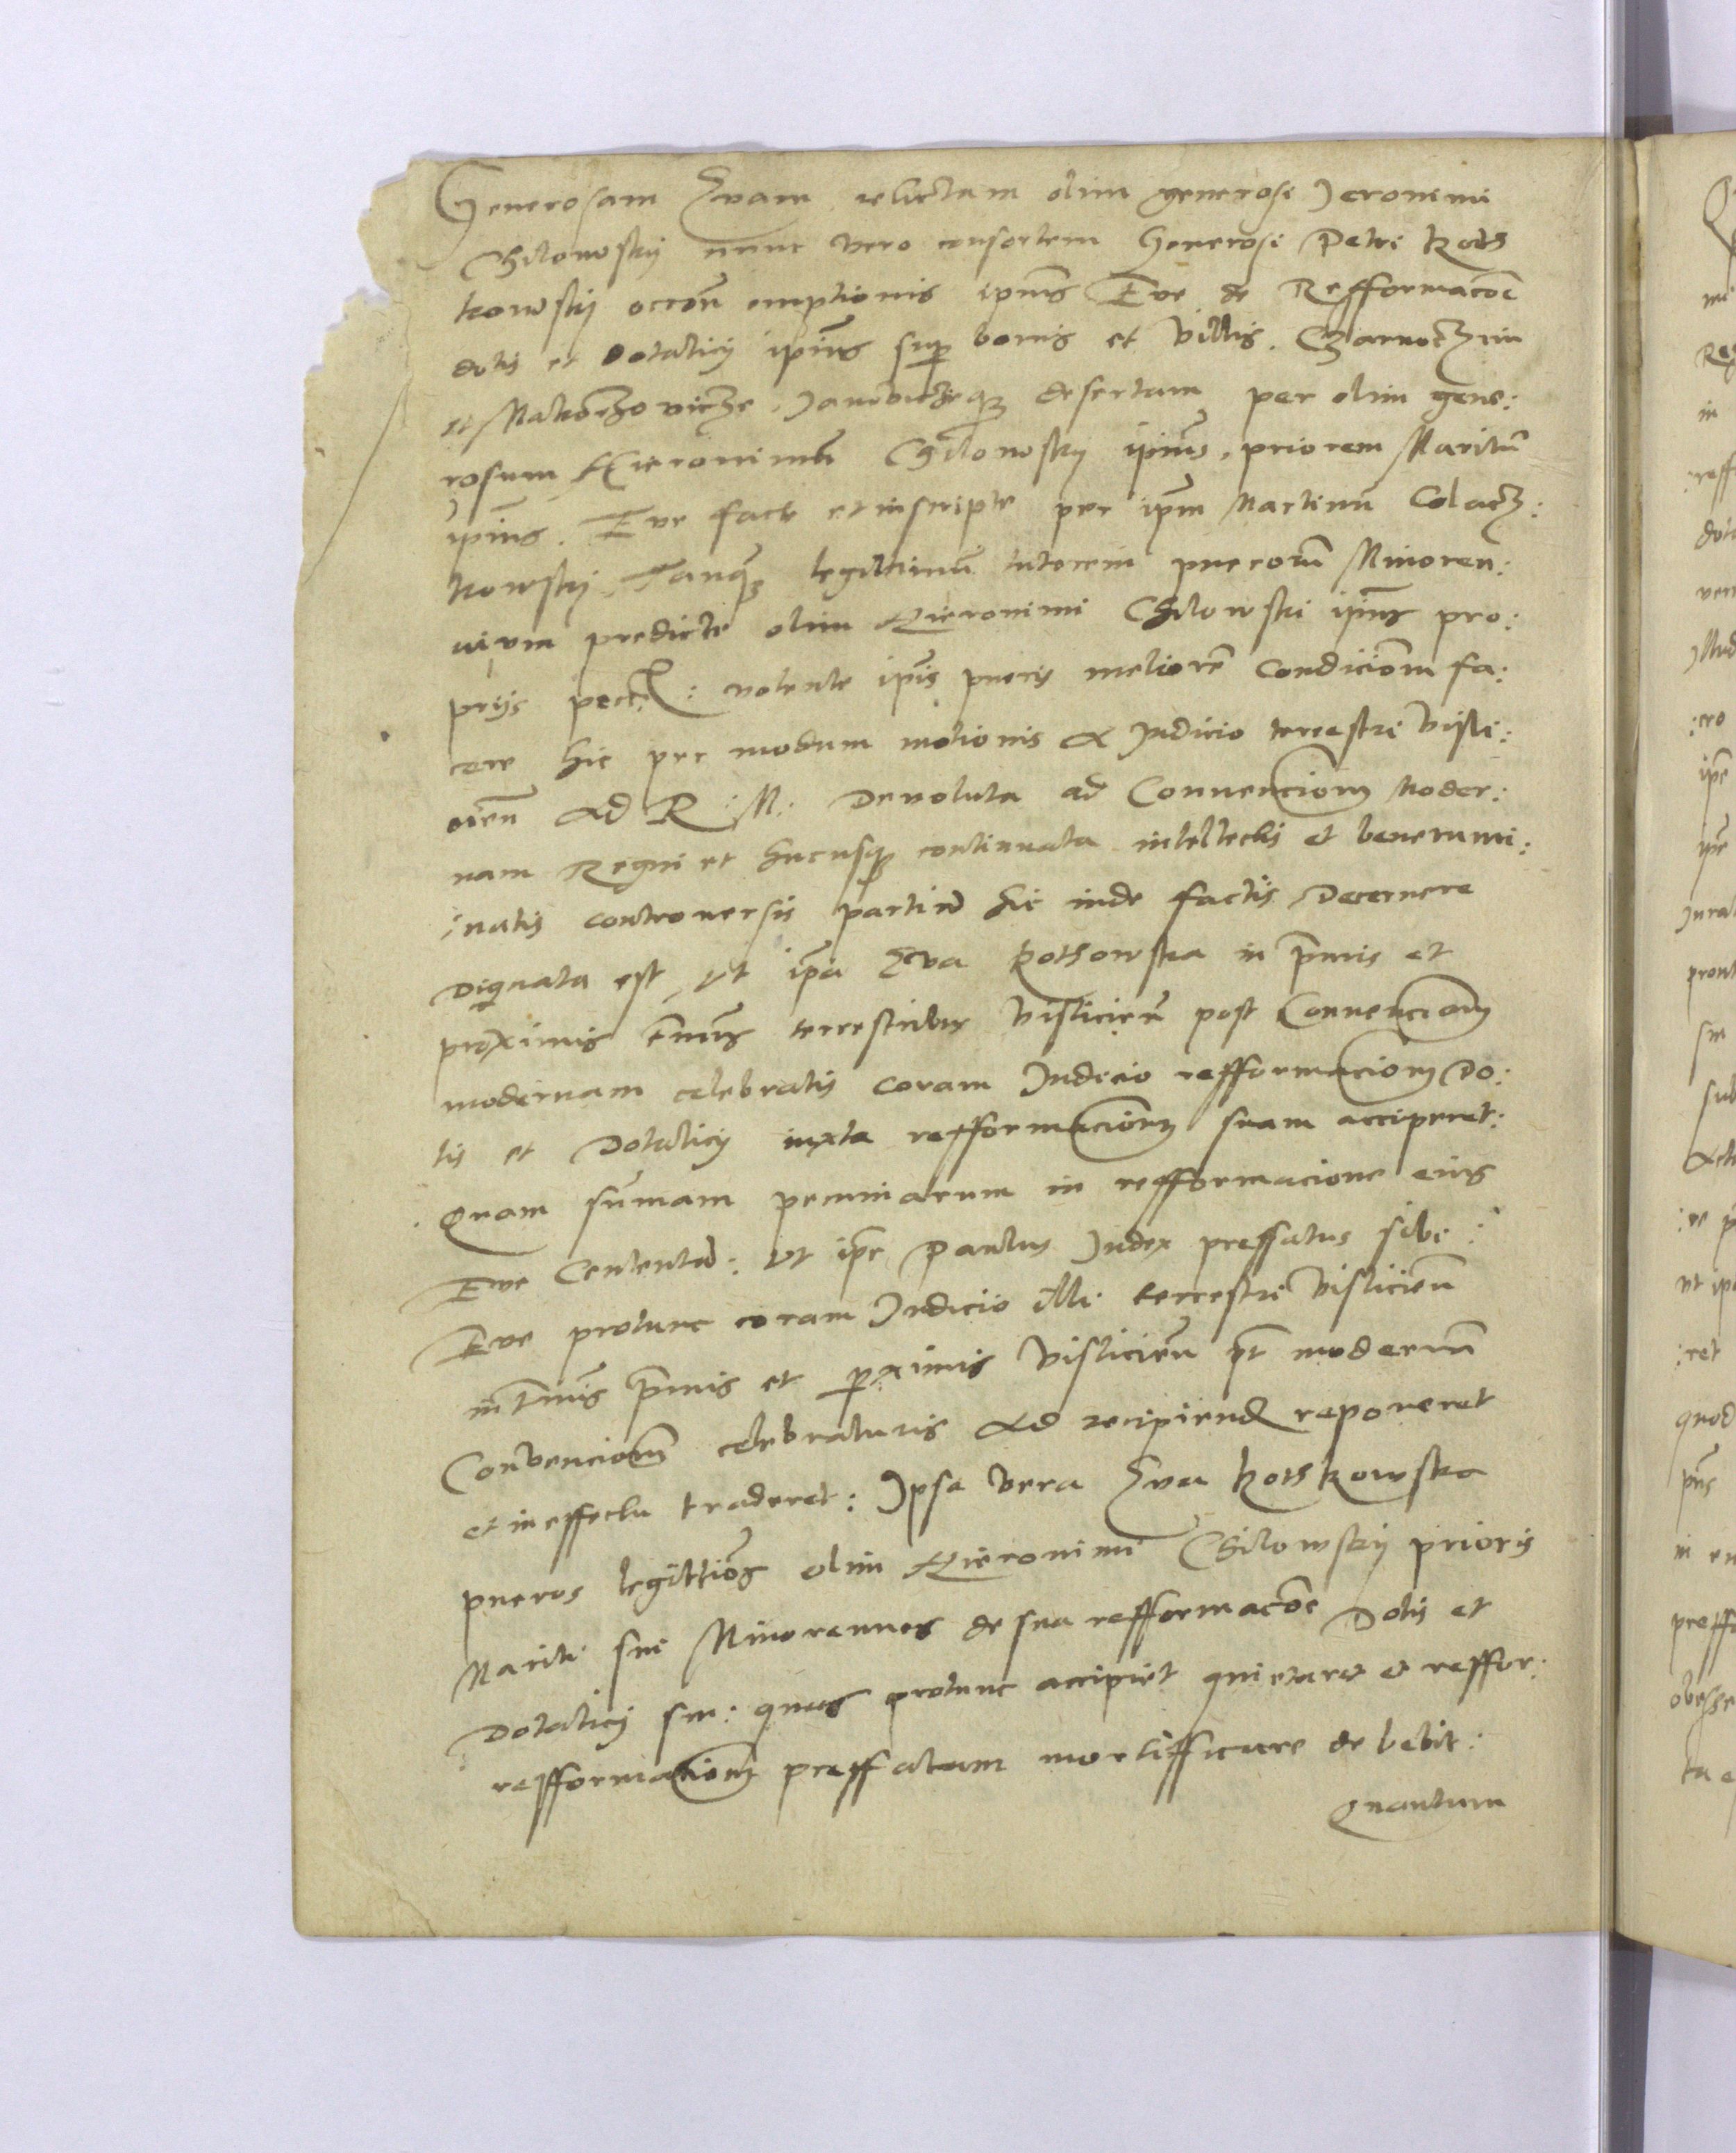 Generosam Evam relictam olim generosi Jeronimi
Chilowskij nunc vero consortem Generosi Petri Koth
kowskij occōn emptionis ipius Eve de Refformacōe
dotis et dotalicij ipius sup bonis et villis. Charnoczin
et Makorzovicze, desertam per olim gene:
rosum Hieronimū Chilowskij ipius, priorem Maritū
ipius. Eve facte et inscripte per ipm Martinū Colacz:
kowskij Tanq legittimū tutorem puerorū Minoren:
nium predicte olim Hieronimi Chilowski ipius pro:
prijs pecc: volente ipis pueris meliorē condicionem fa:
cere hic per modum motionis A Judicio terrestri Visli:
cień Ad R: M: Devoluta ad Convencionem Moder:
nam Regni et hucusq continuata intellectis et bene rumi:
:natis controversiis partiū hic inde factis Decernere
Dignata est, Vt ipa Eva Kothowska in pmis et
proximis Tmis terrestribus Vislicień post Convencionem
modernam celebratis coram Judicio refformacionem Do:
tis et Dotalicij iuxta refformacionem suam acciperet:
Quam sūmam pecuniarum in refformacione eius
Eve Contentā: Vt ipe Paulus Judex preffatus sibi:
Eve protunc coram Judicio illi terrestri Vislicień
in Tmis pmis et pximis Vislicień pt modernā
Convencionem celebraturis Ad recipiend reponeret
et in effectu traderet: Ipsa vera Eva Kothkowska
pueros legittios olim Hieronimi Chilowskij prioris
Mariti sui Minorennes de sua refformacōe Dotis et
Dotalicij sui: quas protunc accipiet quietare et reffor:
refformationem preffatam mortifficare debebit:
Quantum